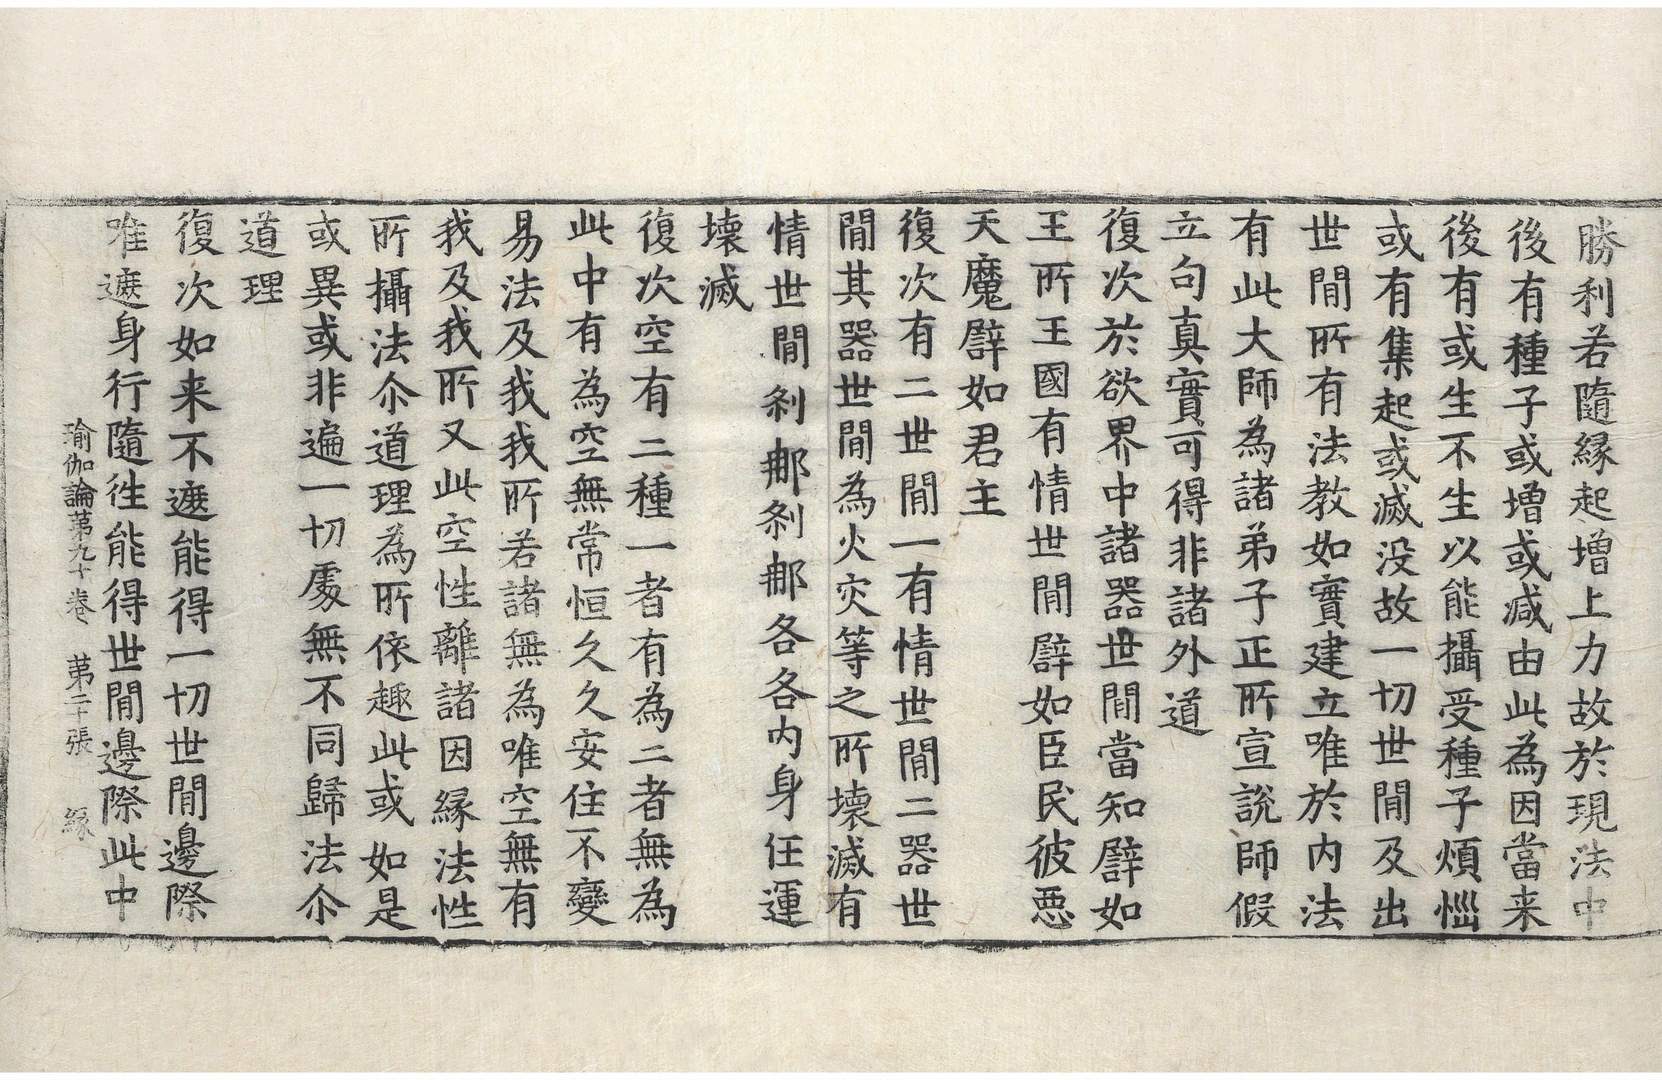 勝利若隨緣起增上力故於現法中
後有種子或增或減由此為因當来
後有或生不生以能攝受種子煩惱
或有集起或滅没故一切世間及出
世間所有法教如實建立唯於内法
有此大師為諸弟子正所宣說師假
立句真實可得非諸外道
復次於欲界中諸器世間當知譬如
王所王國有情世間譬如臣民彼惡
天魔譬如君主
復次有二世間一有情世間二器世
間其器世間為火灾等之所壊滅有
情世間刹那刹那各各内身任運
壊滅
復次空有二種一者有為二者無為
此中有為空無常恒久久安住不變
易法及我我所若諸無為唯空無有
我及我所又此空性離諸因緣法性
所攝法尒道理為所依趣此或如是
或異或非遍一切處無不同歸法尒
道理
復次如来不遮能得一切世間邊際
唯遮身行隨往能得世間邊際此中
瑜伽論苐九十卷 苐二十張 緣